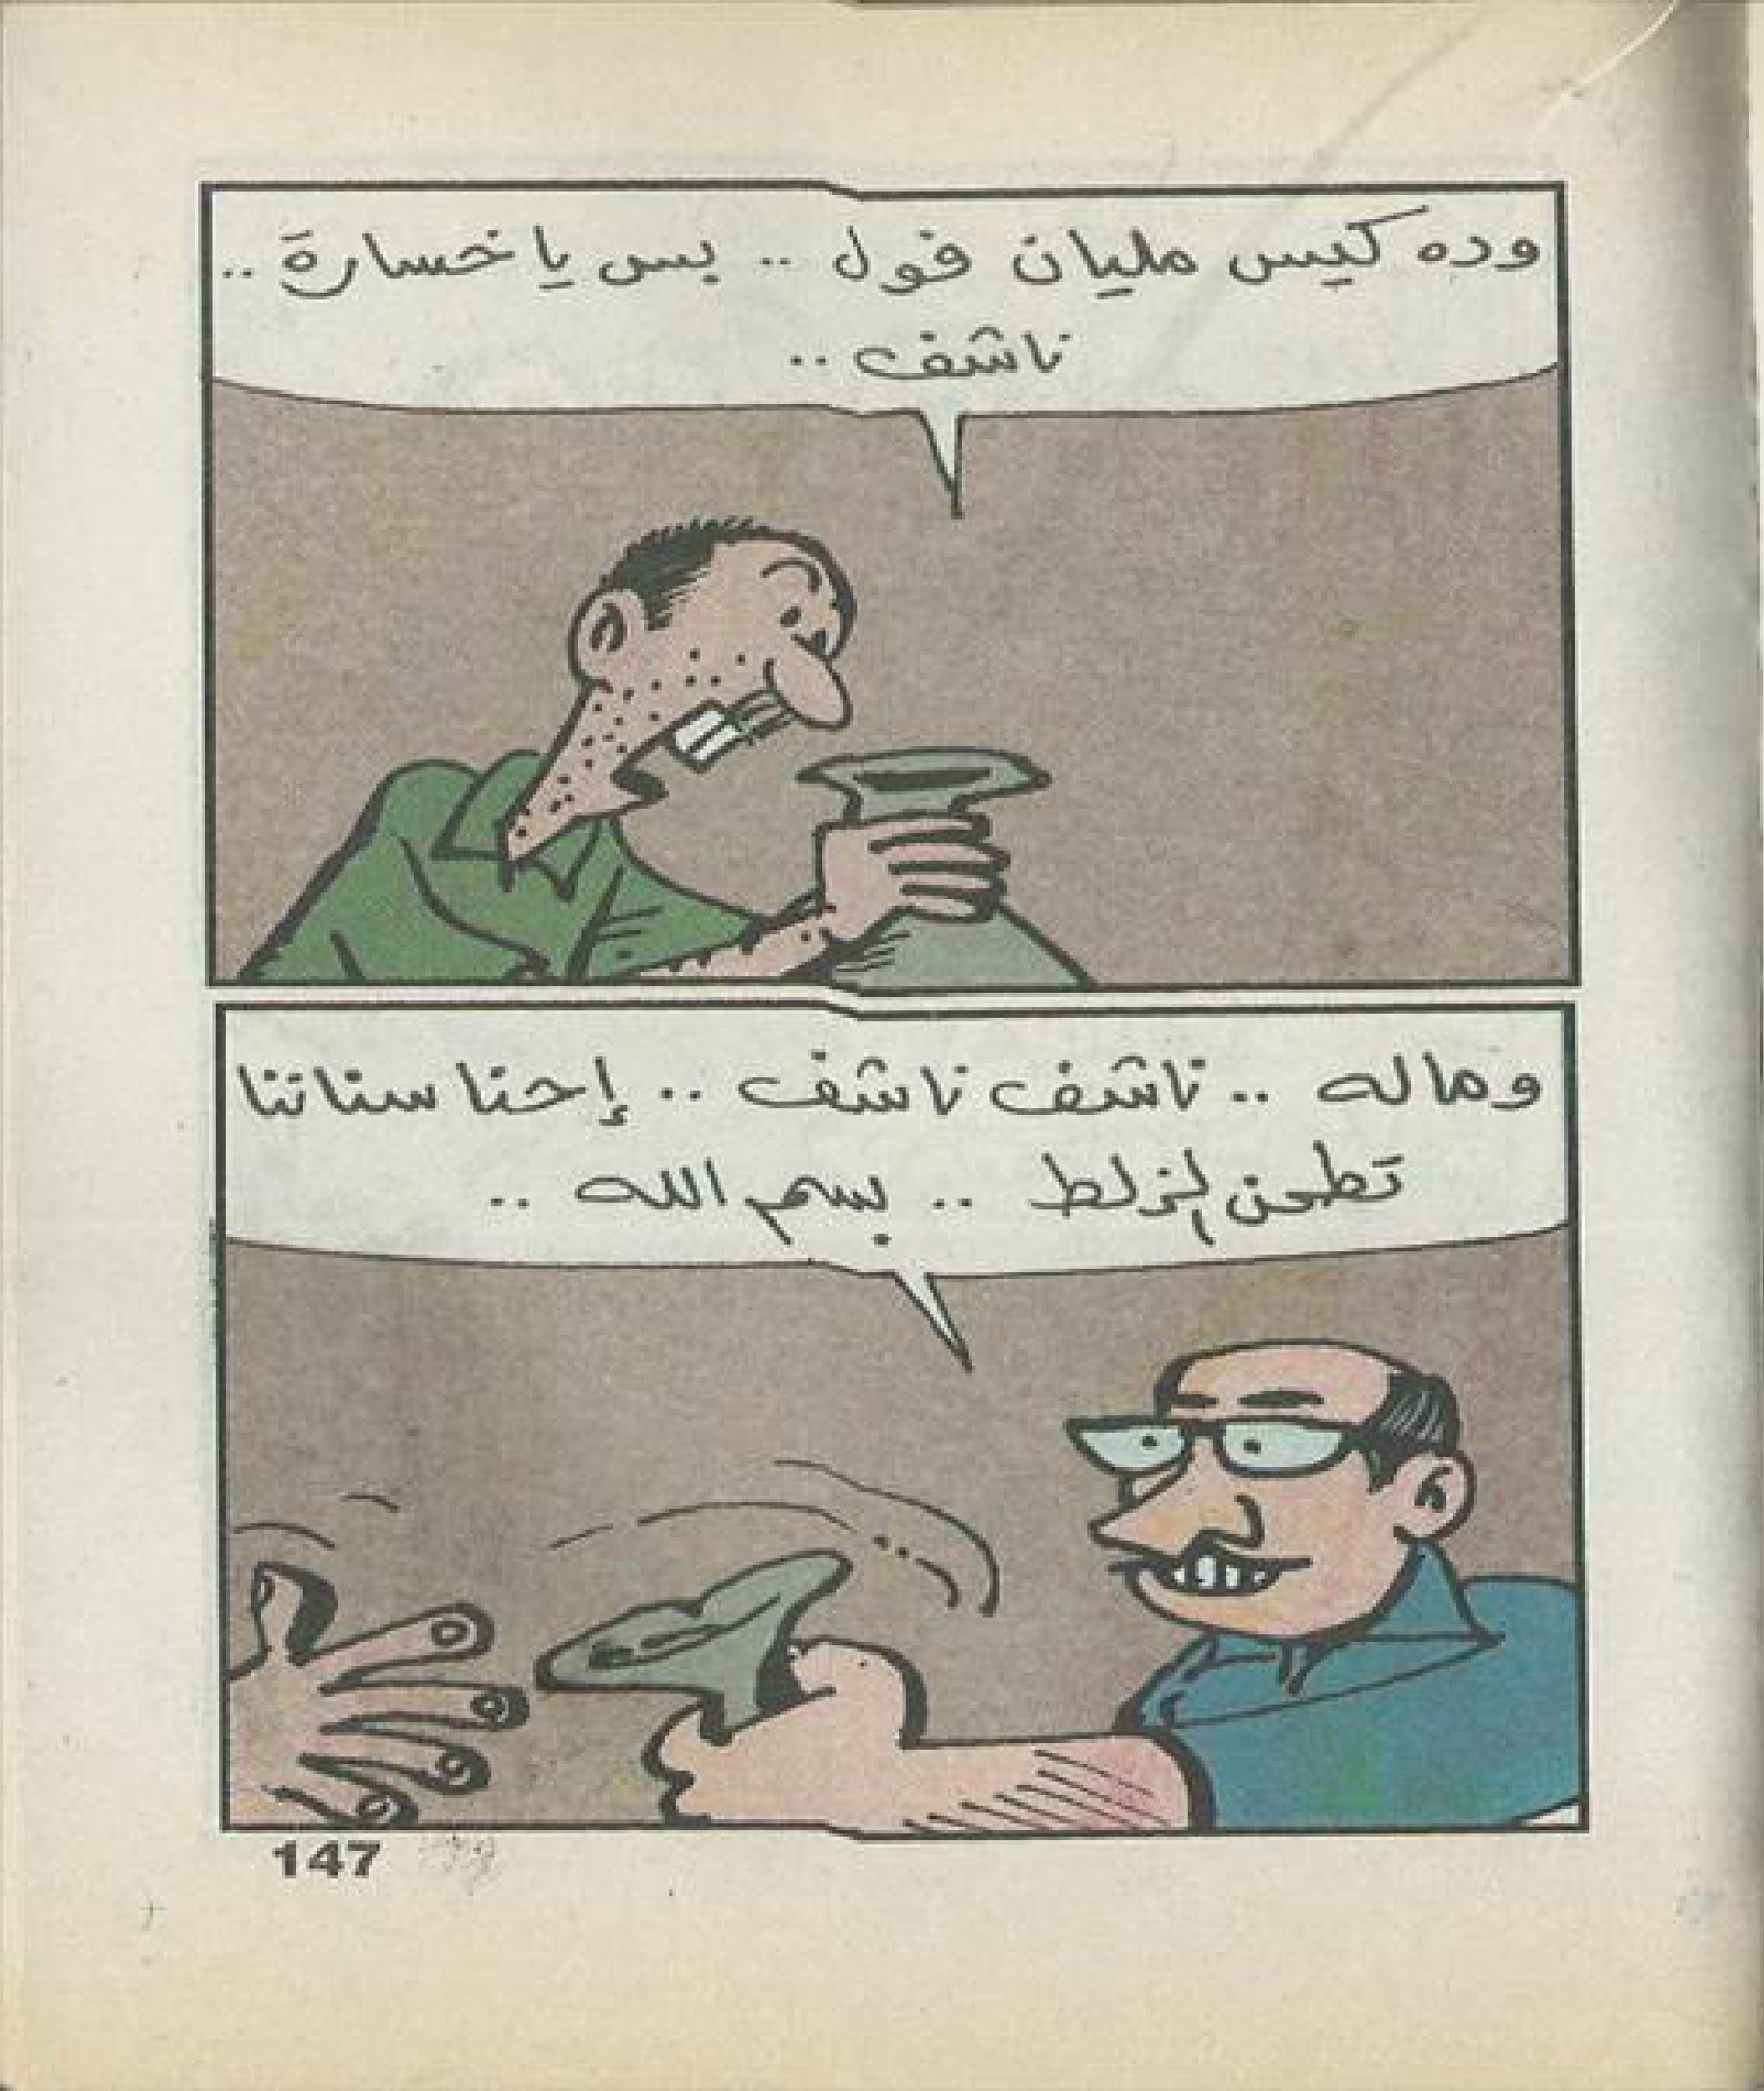 وده كيس مليان فول .. بس يا خسارة ..
ناشف ..
وماله .. ناشف ناشف .. إحنا سناننا
تطحن الزلط .. بسم الله ..
147